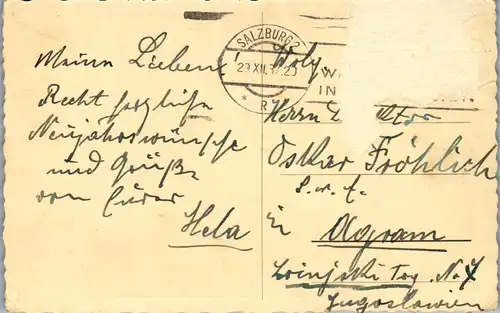 Meine Lieben!
Recht herzliche
Neujahrswünsche
und Grüße
von Eurer
Hela
SALZBURG 2
29.XII.37.20
* R
W
IN
Herrn
Oskar Fröhlich
s. w. f.
in Agram
Jugoslawien